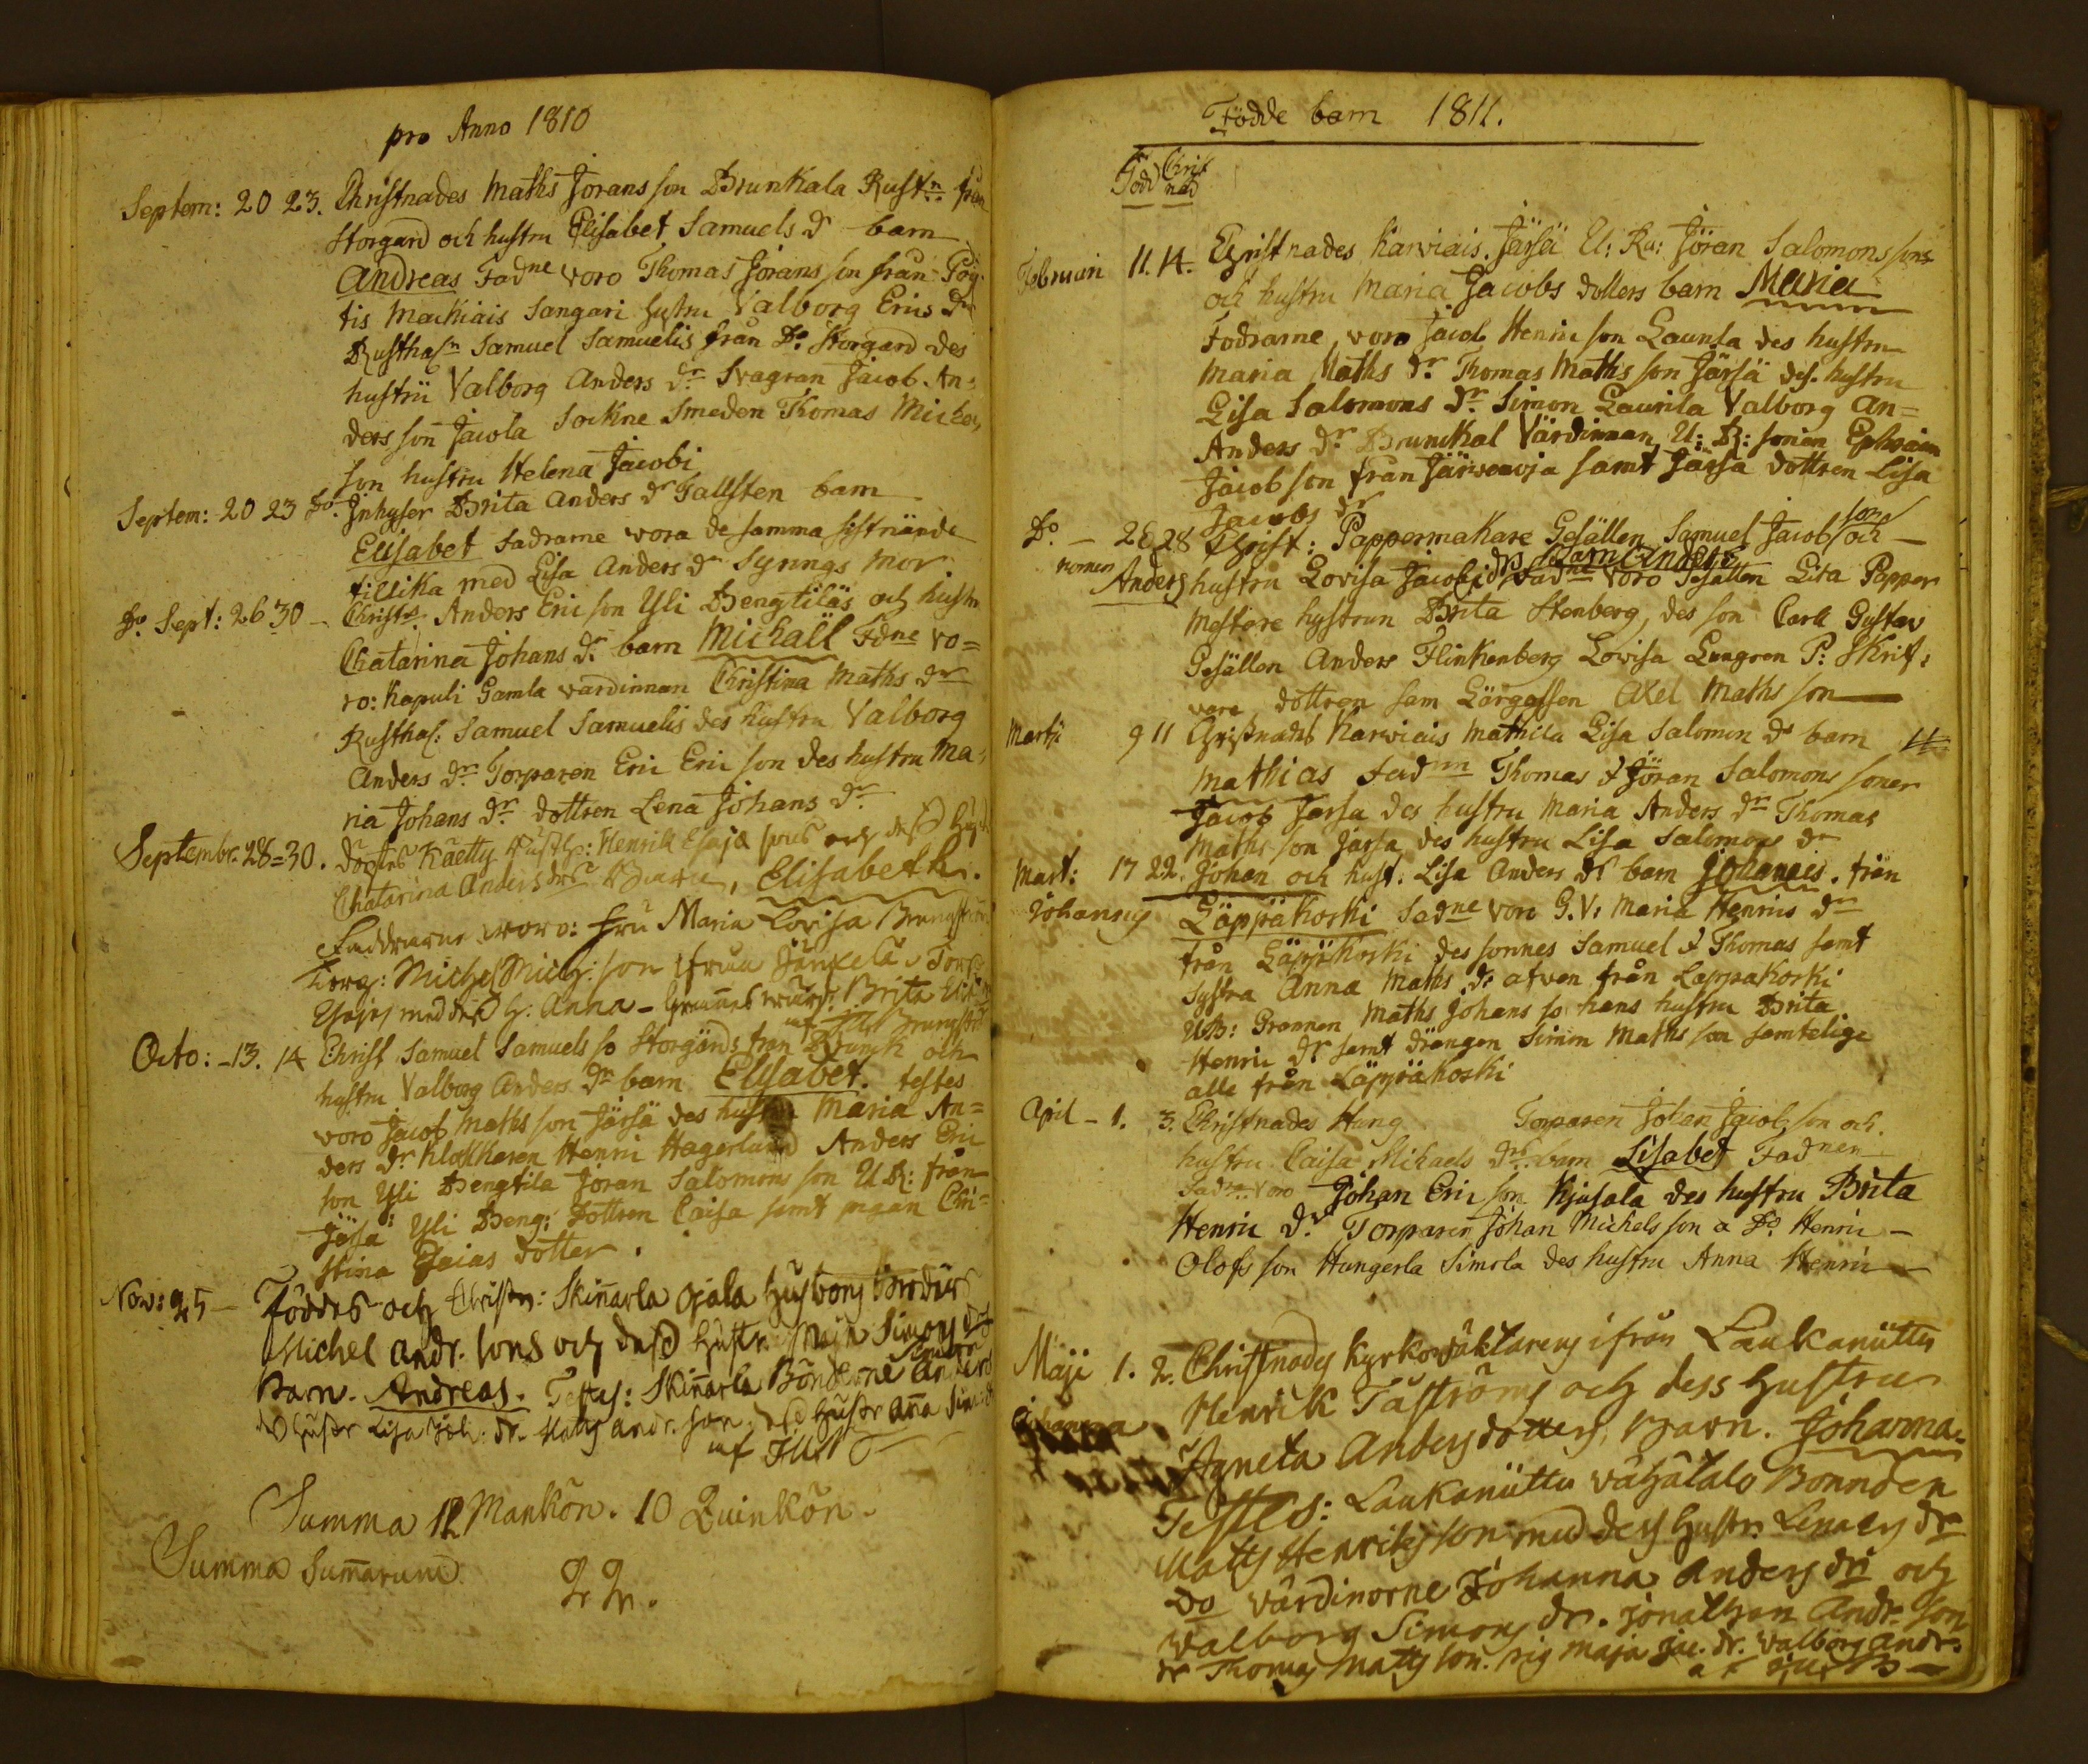 pro Anno 1810
Septem: 20 23. Christnades Maths Jörans son Brunkala Rustn från
Storgård och hustru Elisabet Samuels dr barn
Andreas Fadne voro Thomas Jörans son från Pög-
tis Machiais Sangari hustru Valborg Erics dr
Rusthaln Samuel Samuelis från Do Storgard des
hustru Valborg Anders dr Svagran Jacob An-
ders son Jacola Sockne Smeden Thomas Michel
son hustru Helena Jacobi
Septem: 20 23 Do Inhyser Brita Anders dr Tallsten barn
Elisabet fadrarne vora de samma sistnände
tillika med Lisa Anders dr Synings mor
Do Sept: 26 30 Christs Anders Eric son Yli Bengtiläs och hustru
Chatarina Johans dr barn Michall Fdne vo=
ro: Kapuli Gamla vardinnan Christina Maths dr
Rusthal: Samuel Samuelis des hustru Valborg
Anders dr Torparen Eric Eric son des hustru Ma=
ria Johans dr dottren Lena Johans dr
Septembr. 28=30. Döptes Kaetty Rusth: Henrik Esaiæ sons och dess hust
Chatarina Anders drs Barn, Elisabeth.
Faddrarne woro: Fru Maria Lovisa
Torp: Michel Mich: son ifrån Jänkela Torp
Esaias med dess h. Anna - Brita
Octo: 13. 14 Christ Samuel Samuels so Storgårds från Brunk och
hustru Valborg Anders dr barn Elisabet. testes
voro Jacob Maths son Järsä des hustru Maria An=
ders dr Klockharen Henric Hagerlund Anders Eric
son Yli Bengtila Jöran Salomons son U R: från
Jäsä Yli Beng: Dottren Caisa samt pigan Chri=
stina Esaias dotter.
Nov: 25 Föddes och Christn: Skinarla Ojala Husbons Brodur
Michel Andr. sons och dess Hustr. Maja Simons dr
Barn. Andreas. Testes: Skinarla Bönderne Anders
Hustr Lisa Joh. dr. Matts Andr. son. dess Hustr Ana
af
Summa 12 Mankön. 10 Quinkön.
Summa Sumarum 22.
Födde barn 1811.
Född Christ
nad
Februari 11. 14. Christnades Karviais. Järsä U: Ru: Jöran Salomons sons
och hustru Maria Jacobs dotters barn Maria
Fodrarne voro Jacob Henric son Launla des hustru
Maria Maths dr. Thomas Maths son Järsä des. hustru
Lisa Salomons dr. Simon Laurila Valborg An=
Anders dr Brunckal Värdinnan U: R: sonen Ephraim
Jacob son från samt Järsa dottren Lisa
Jacobs dr
Do - 26 28 Christ: Pappermakare Gesällen Samuel Jacob son och
nomen
Anders hustru Lovisa Jacobi dr barn Anders Fadne voro Gesällen Lisa Papper
Mestare hustrun Brita Stenberg, des son Carl Gustav
Gesällen Anders Flinkenberg Lovisa Lungren P: Skrif:
vare dottren sam Gesällen Axel Maths son
Martii 9 11 Christnades Karviais Mathila Lisa Salomon dr barn
Mathias Fadnn Thomas & Jöran Salomons soner
Jacob Jarsa des hustru Maria Anders dr Thomas
Maths son Jarsa des hustru Lisa Salomons dr
Mart: 17 22. Johan och hust. Lisa Anders dr barn Johannes. från
Johannes Läppäkoski Fadne voro G.V: Maria Henrics dr
från Läppäkoski des sonnes Samuel & Thomas samt
Systra Anna Maths dr afven från Lappakoski
UB: Grannen Maths Johans so hans hustru Brita
Henric dr samt drängen Simon Maths son samtelige
alle från Läppäkoski
April - 1. 3. Christnades Hung Torparen Johan Jacob son och
hustru Caisa Michaels drs barn Lisabet Fadnen
Fadrn voro Johan Eric son Kjusala des hustru Brita
Henric dr Torparen Johan Michels son a Do Henric -
Olofs son Hungerla Simola des hustru Anna Henric
Maji 1. 2. Christnades Kyrkowäktarens ifrån Laukanüttu
Johanna Henrik Taströms och dess Hustru
Agneta Anders dotters, Barn. Johanna.
Testes: Laukanüttu Vähätalo Bonnden
Matts Henriks son med dess hustr. Lena Er dr
Do Värdinorne Johanna Anders dr och
Walborg Simons dr. Jonathan Andr. son
dr Thomas Matts son. Pig Maja Jac. dr. Walborg Andr.